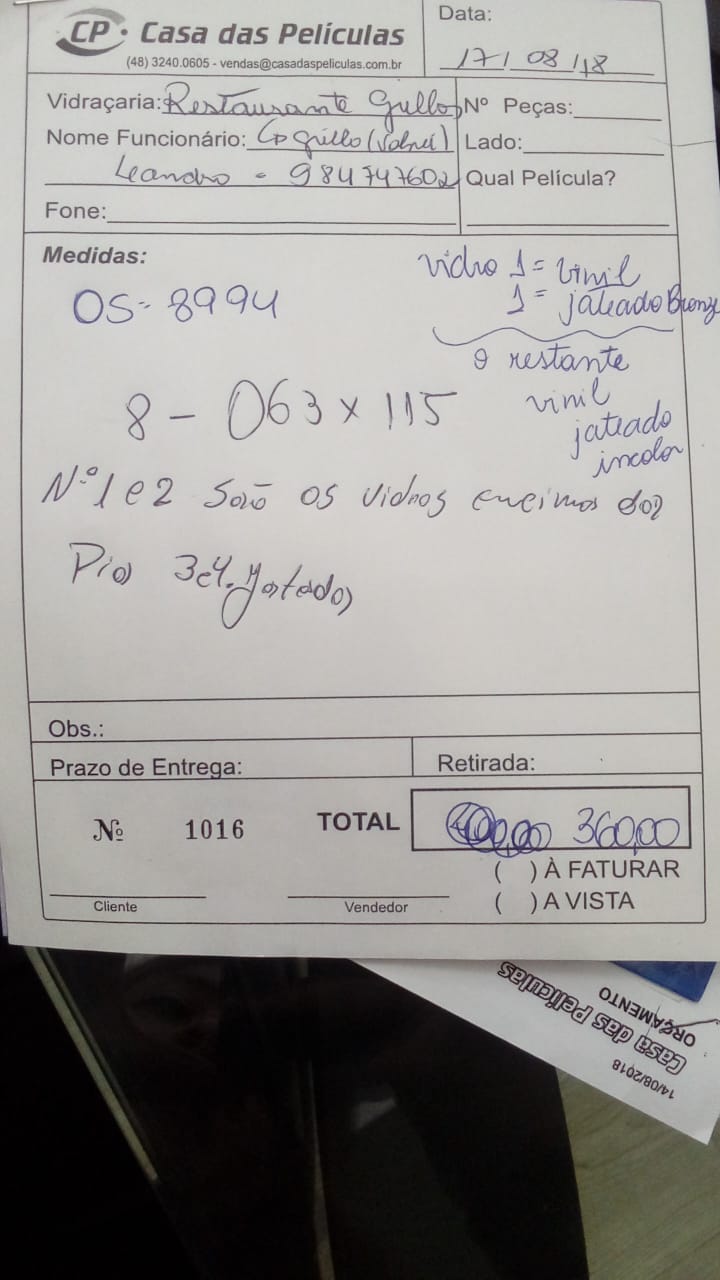 CP · Casa das Películas
(48) 3240.0605 - vendas@casadaspeliculas.com.br
Data:
17/08/18
Vidraçaria: Restaurante Gullo
Nº Peças:
Nome Funcionário: Grillo (Volnei)
Lado:
Leandro - 984747602
Qual Película?
Fone:
Medidas:
vidro 1 = vinil
1 = jateado Bronze
OS - 8994
o restante
vinil
jateado
incolor
8 - 063 x 115
Nº 1 e 2 São os vidros encimos das
Pias 3 e 4. Jatados
Obs.:
Prazo de Entrega:
Retirada:
Nº 1016
TOTAL
360,00
( ) À FATURAR
( ) A VISTA
Cliente
Vendedor
Casa das Películas
ORÇAMENTO
14/08/2018